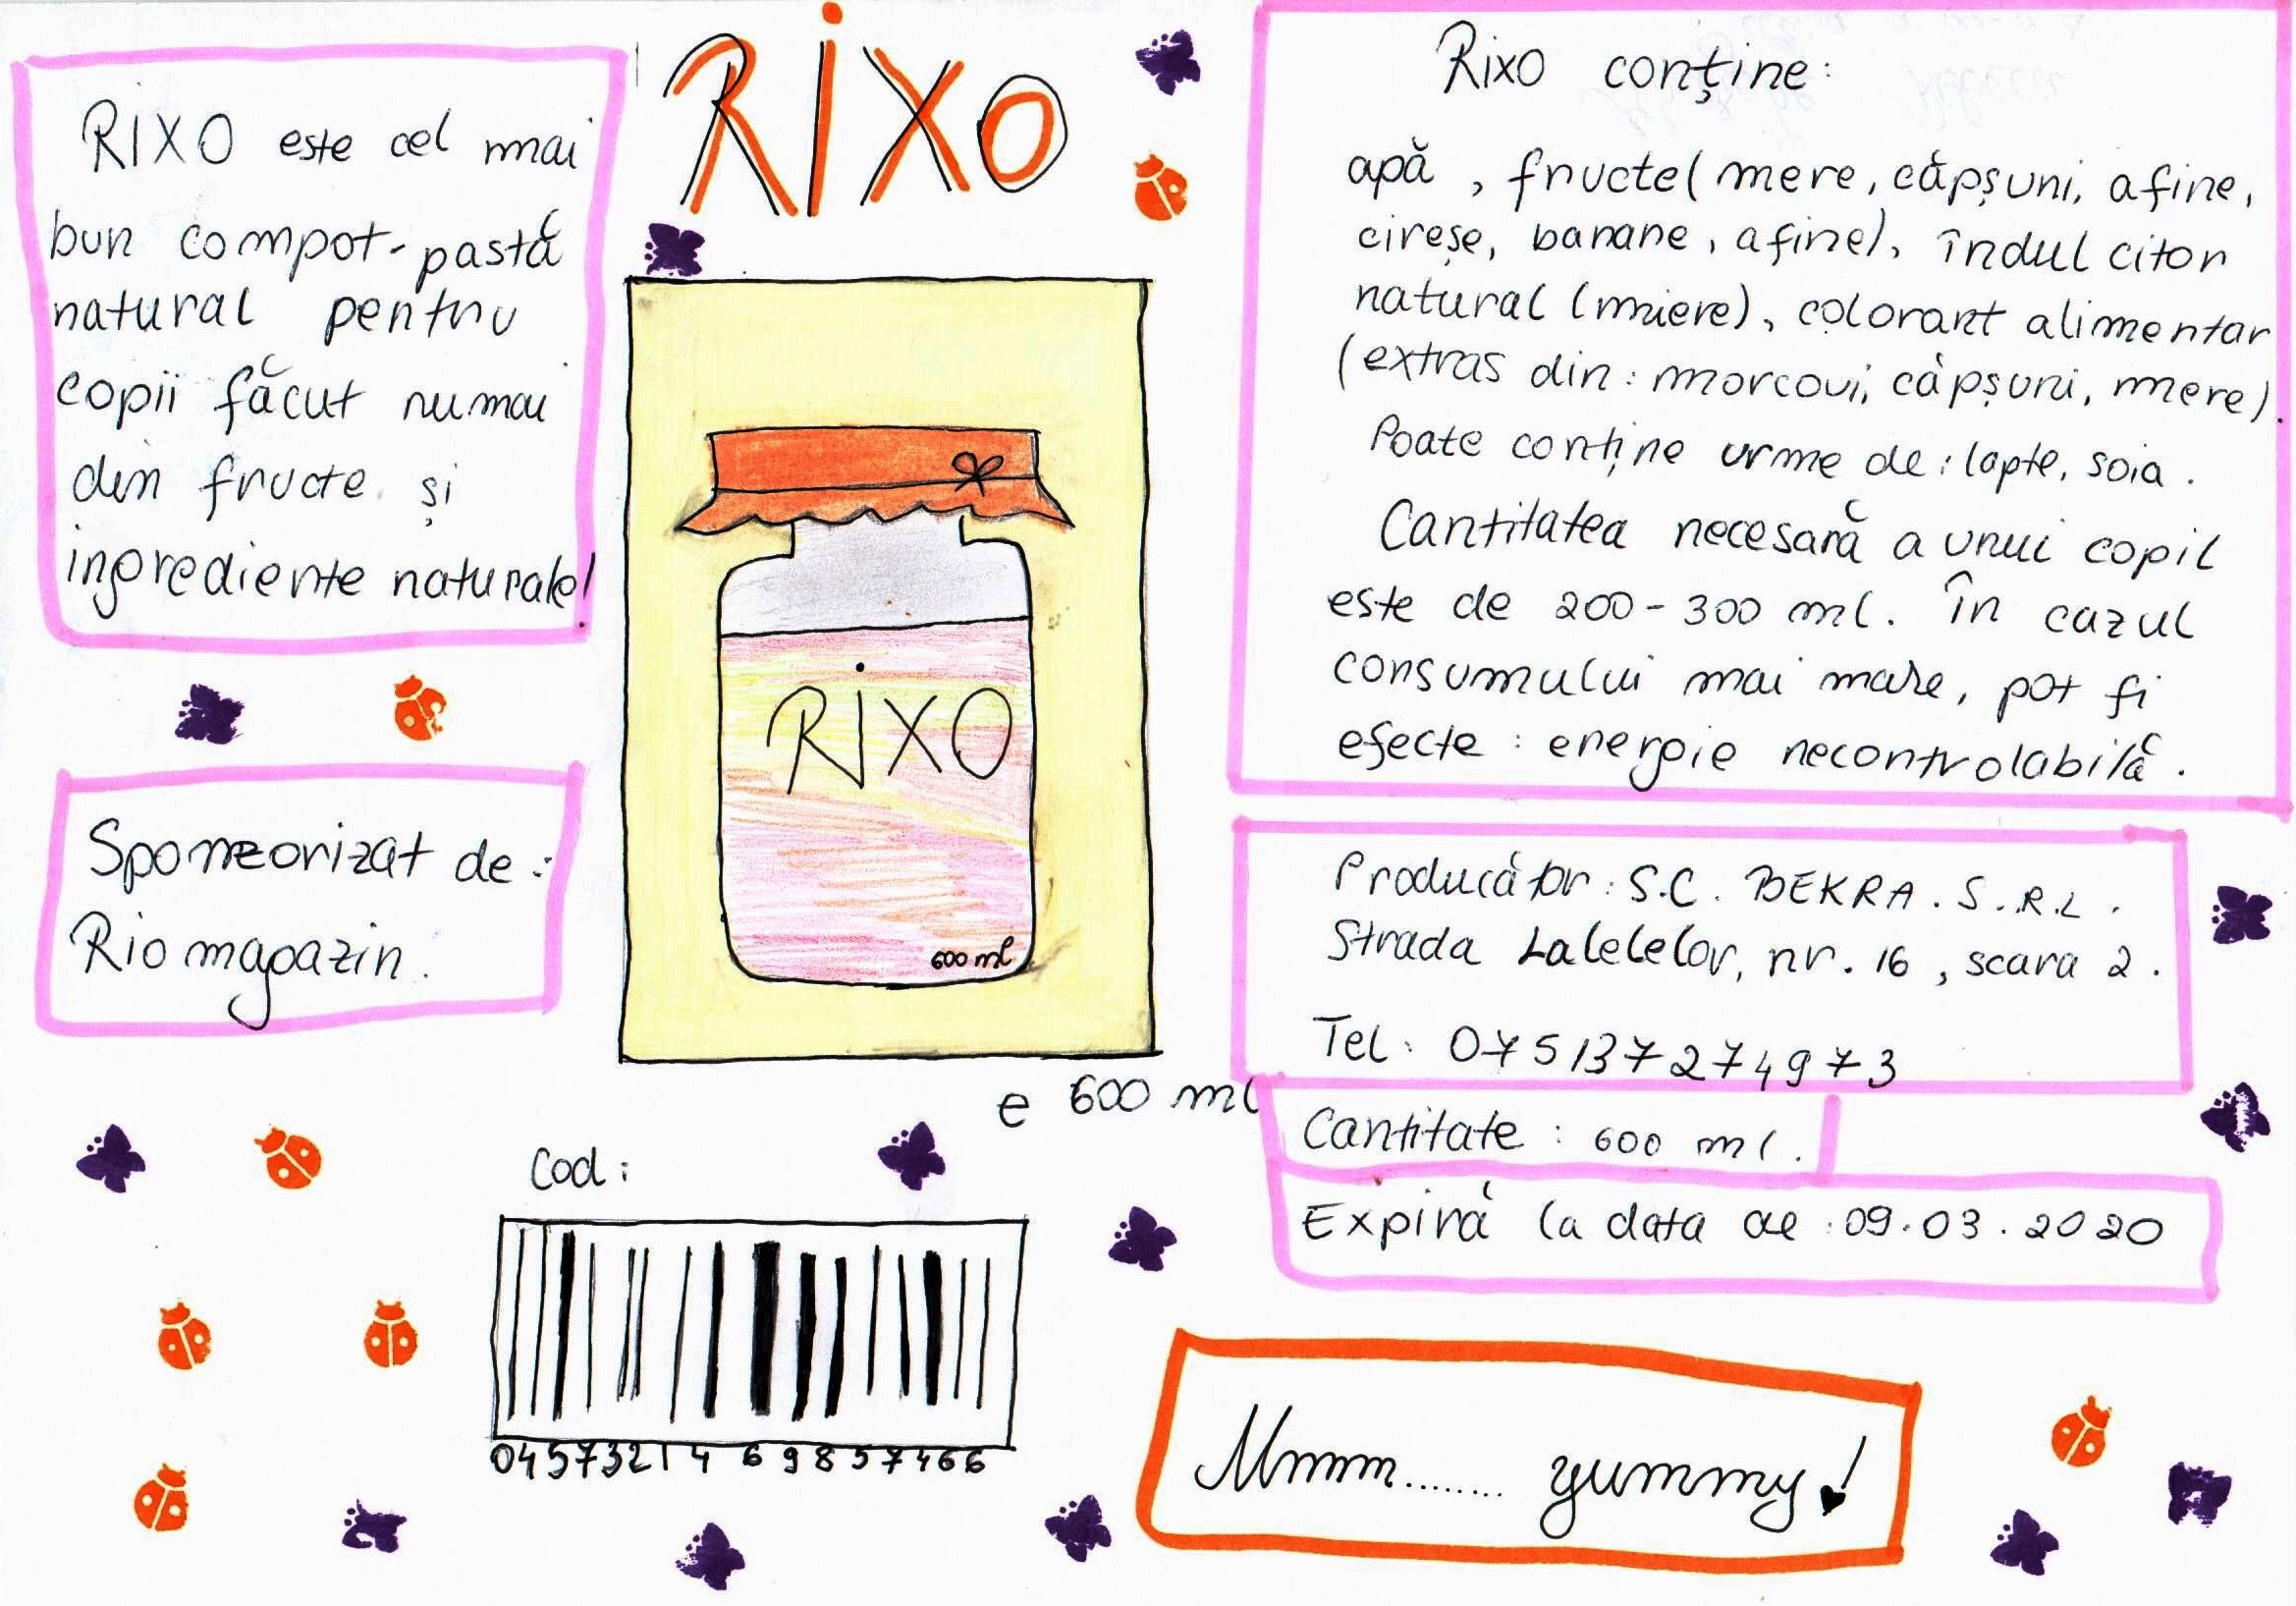 RIXO
RIXO este cel mai
bun compot-pastă
natural pentru
copii făcut numai
din fructe și
ingrediente naturale!
Sponzorizat de:
Rio magazin.
RIXO
600 ml
e 600 ml
Cod:
04573214 69857466
Rixo conține:
apă, fructe (mere, căpșuni, afine,
cireșe, banane, afine), îndulcitor
natural (miere), colorant alimentar
(extras din: morcovi, căpșuni, mere).
Poate conține urme de: lapte, soia.
Cantitatea necesară a unui copil
este de 200-300 ml. În cazul
consumului mai mare, pot fi
efecte: energie necontrolabilă.
Producător: S.C. BEKRA. S.R.L.
Strada Lalelelor, nr. 16, scara 2.
Tel: 075137274973
Cantitate: 600 ml.
Expiră la data de: 09.03.2020
Mmmm........ yummy!